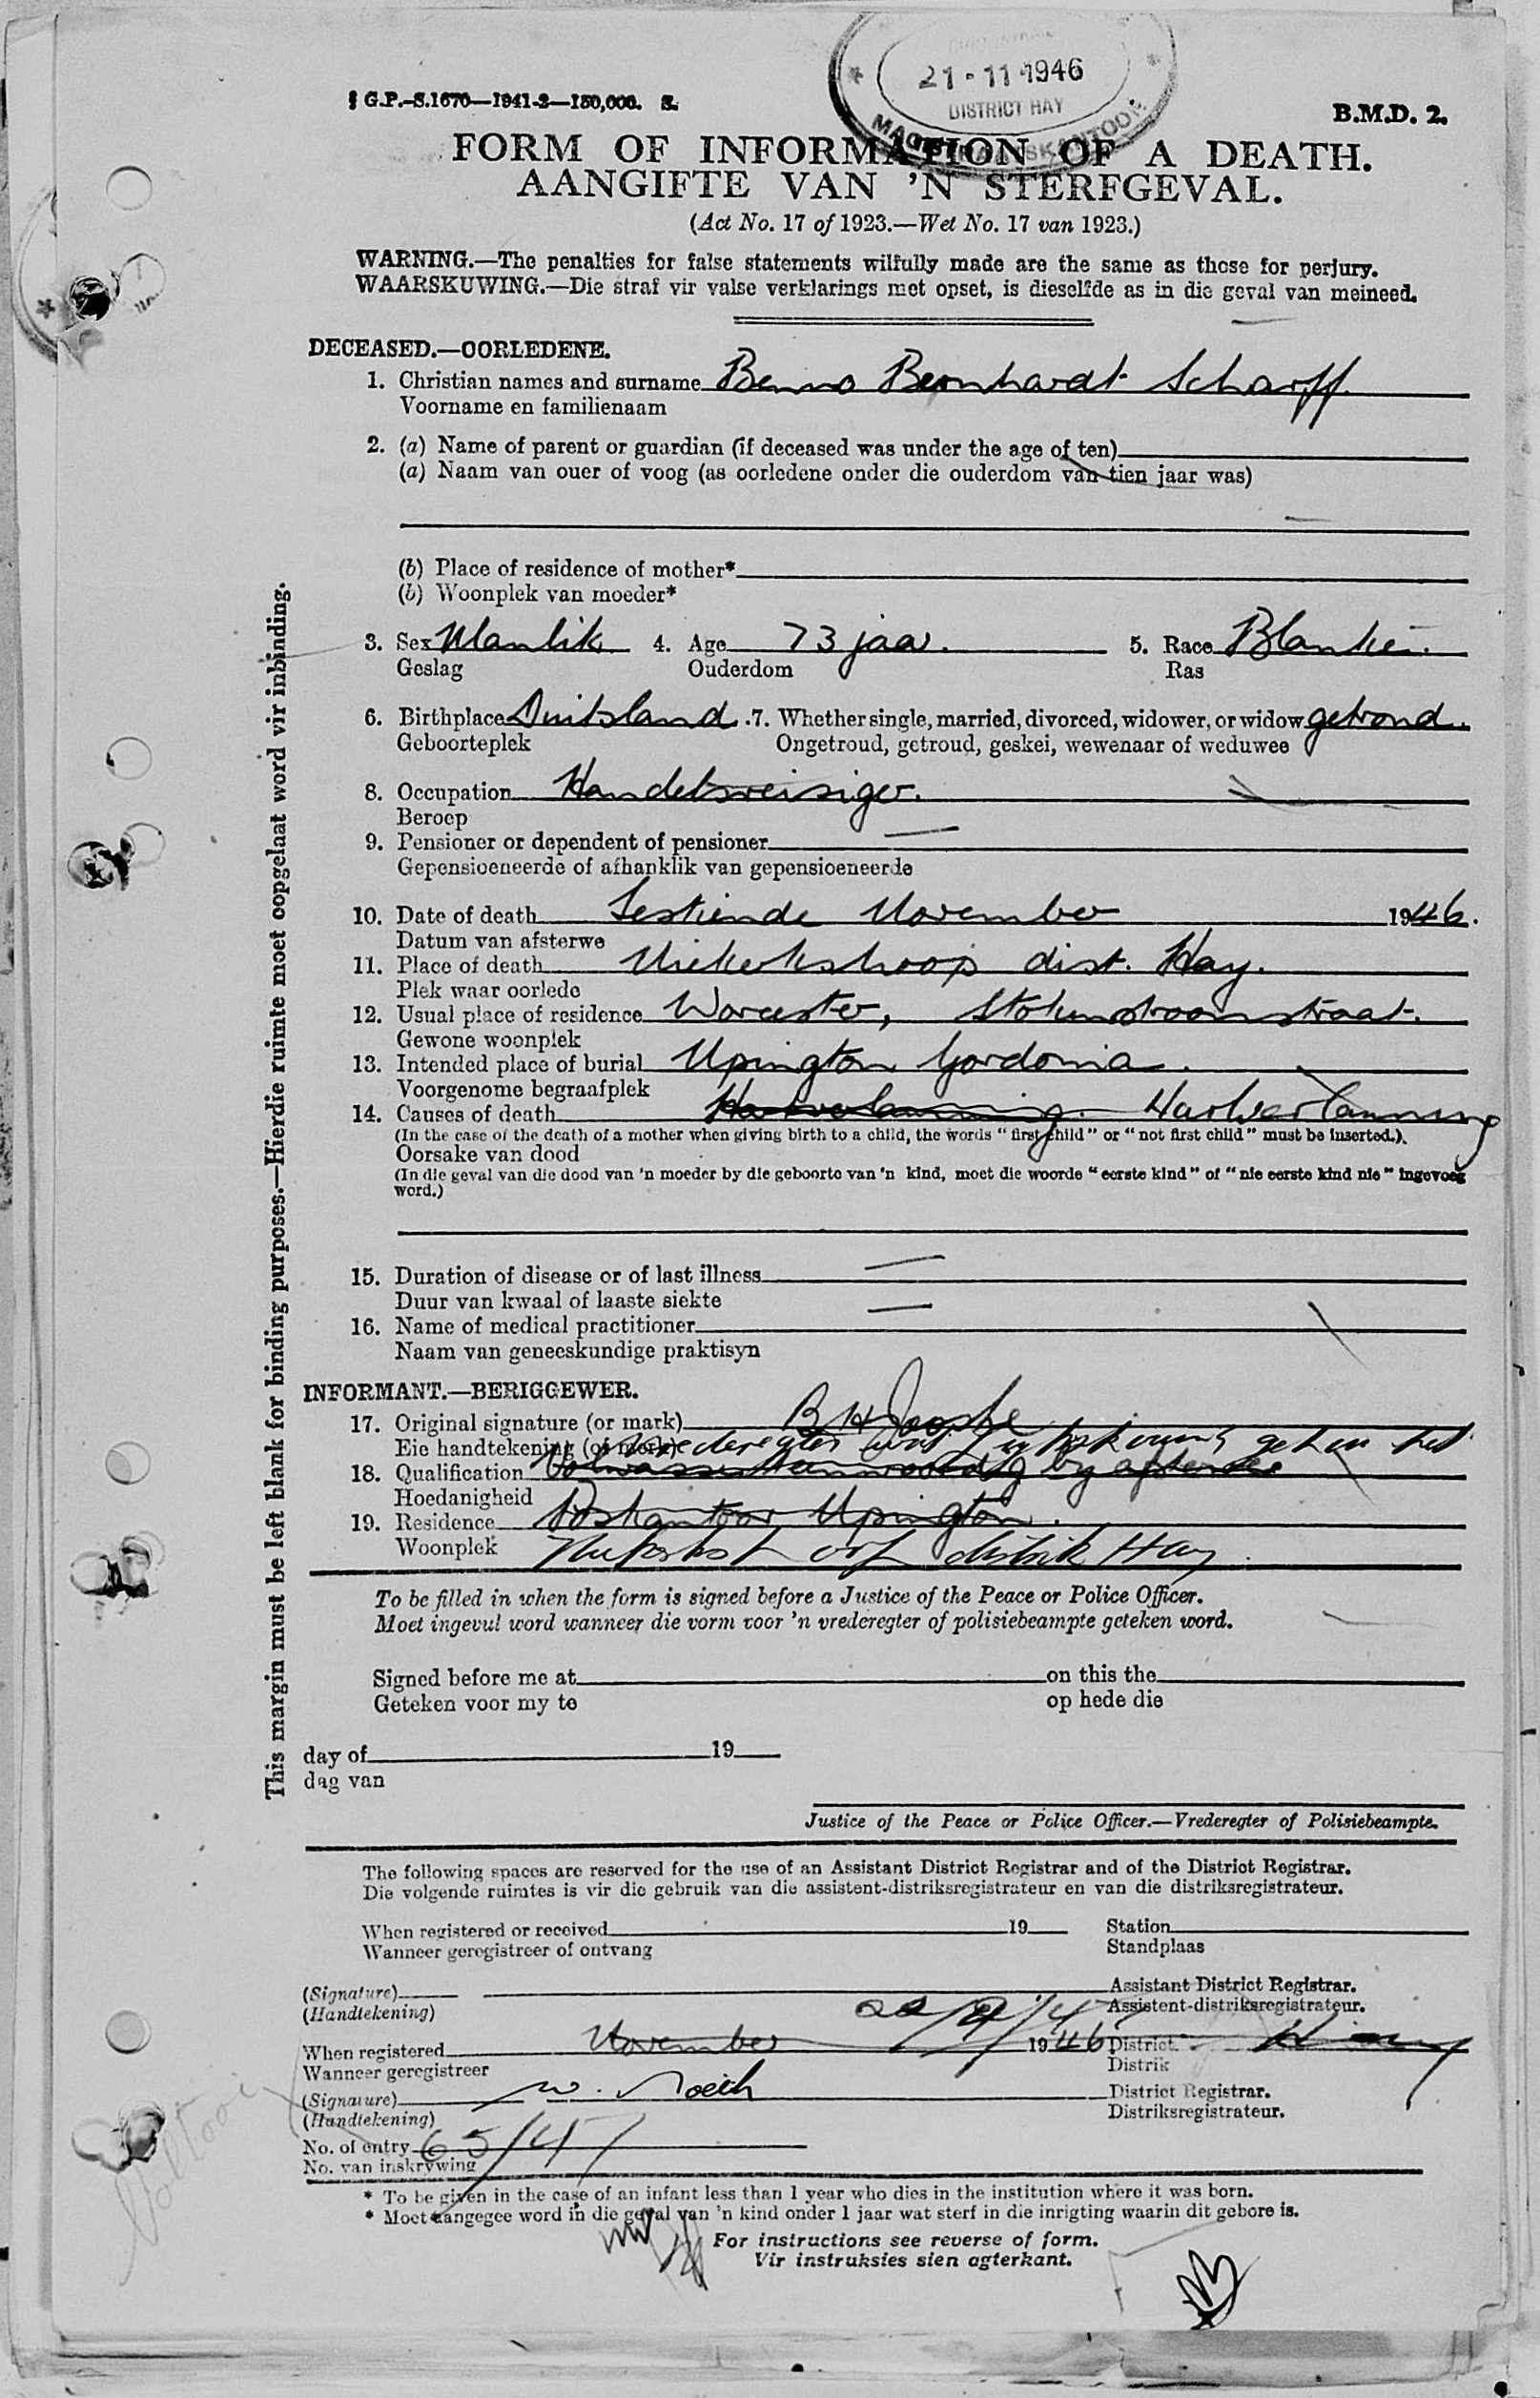 21-11-1946
DISTRICT HAY
MAGISTRAATSKANTOOR
G.P.-S.1670—1941-2—150,000. S.
B.M.D. 2.
FORM OF INFORMATION OF A DEATH.
AANGIFTE VAN 'N STERFGEVAL.
(Act No. 17 of 1923.—Wet No. 17 van 1923.)
WARNING.—The penalties for false statements wilfully made are the same as those for perjury.
WAARSKUWING.—Die straf vir valse verklarings met opset, is dieselfde as in die geval van meineed.
DECEASED.—OORLEDENE.
1. Christian names and surname Benno Bernhardt Scharff
Voorname en familienaam
2. (a) Name of parent or guardian (if deceased was under the age of ten)
(a) Naam van ouer of voog (as oorledene onder die ouderdom van tien jaar was)
(b) Place of residence of mother*
(b) Woonplek van moeder*
3. Sex Manlik 4. Age 73 jaar. 5. Race Blanke.
Geslag Ouderdom Ras
6. Birthplace Duitsland. 7. Whether single, married, divorced, widower, or widow getroud.
Geboorteplek Ongetroud, getroud, geskei, wewenaar of weduwee
8. Occupation Handelsreisiger.
Beroep
9. Pensioner or dependent of pensioner —
Gepensioeneerde of afhanklik van gepensioeneerde
10. Date of death Sestiende November 1946.
Datum van afsterwe
11. Place of death Niekerkshoop dist. Hay.
Plek waar oorlede
12. Usual place of residence Worcester, Stokenstroomstraat.
Gewone woonplek
13. Intended place of burial Upington Gordonia.
Voorgenome begraafplek
14. Causes of death Hartverlamming. Hartverlamming
(In the case of the death of a mother when giving birth to a child, the words "first child" or "not first child" must be inserted.)
Oorsake van dood
(In die geval van die dood van 'n moeder by die geboorte van 'n kind, moet die woorde "eerste kind" of "nie eerste kind nie" ingevoeg
word.)
15. Duration of disease or of last illness —
Duur van kwaal of laaste siekte
16. Name of medical practitioner —
Naam van geneeskundige praktisyn
INFORMANT.—BERIGGEWER.
17. Original signature (or mark) B H Jooste
Eie handtekening (of merk) Vrederegter wat het
18. Qualification Volwassene teenwoordig by afsterwe
Hoedanigheid
19. Residence Poskantoor Upington.
Woonplek distrik Hay.
To be filled in when the form is signed before a Justice of the Peace or Police Officer.
Moet ingevul word wanneer die vorm voor 'n vrederegter of polisiebeampte geteken word.
Signed before me at on this the
Geteken voor my te op hede die
day of 19
dag van
Justice of the Peace or Police Officer.—Vrederegter of Polisiebeampte.
The following spaces are reserved for the use of an Assistant District Registrar and of the District Registrar.
Die volgende ruimtes is vir die gebruik van die assistent-distriksregistrateur en van die distriksregistrateur.
When registered or received 19 Station
Wanneer geregistreer of ontvang Standplaas
(Signature) Assistant District Registrar.
(Handtekening) Assistent-distriksregistrateur.
When registered November 1946 District
Wanneer geregistreer Distrik
(Signature) District Registrar.
(Handtekening) Distriksregistrateur.
No. of entry 65/47
No. van inskrywing
* To be given in the case of an infant less than 1 year who dies in the institution where it was born.
* Moet aangegee word in die geval van 'n kind onder 1 jaar wat sterf in die inrigting waarin dit gebore is.
For instructions see reverse of form.
Vir instruksies sien agterkant.
This margin must be left blank for binding purposes.—Hierdie ruimte moet oopgelaat word vir inbinding.